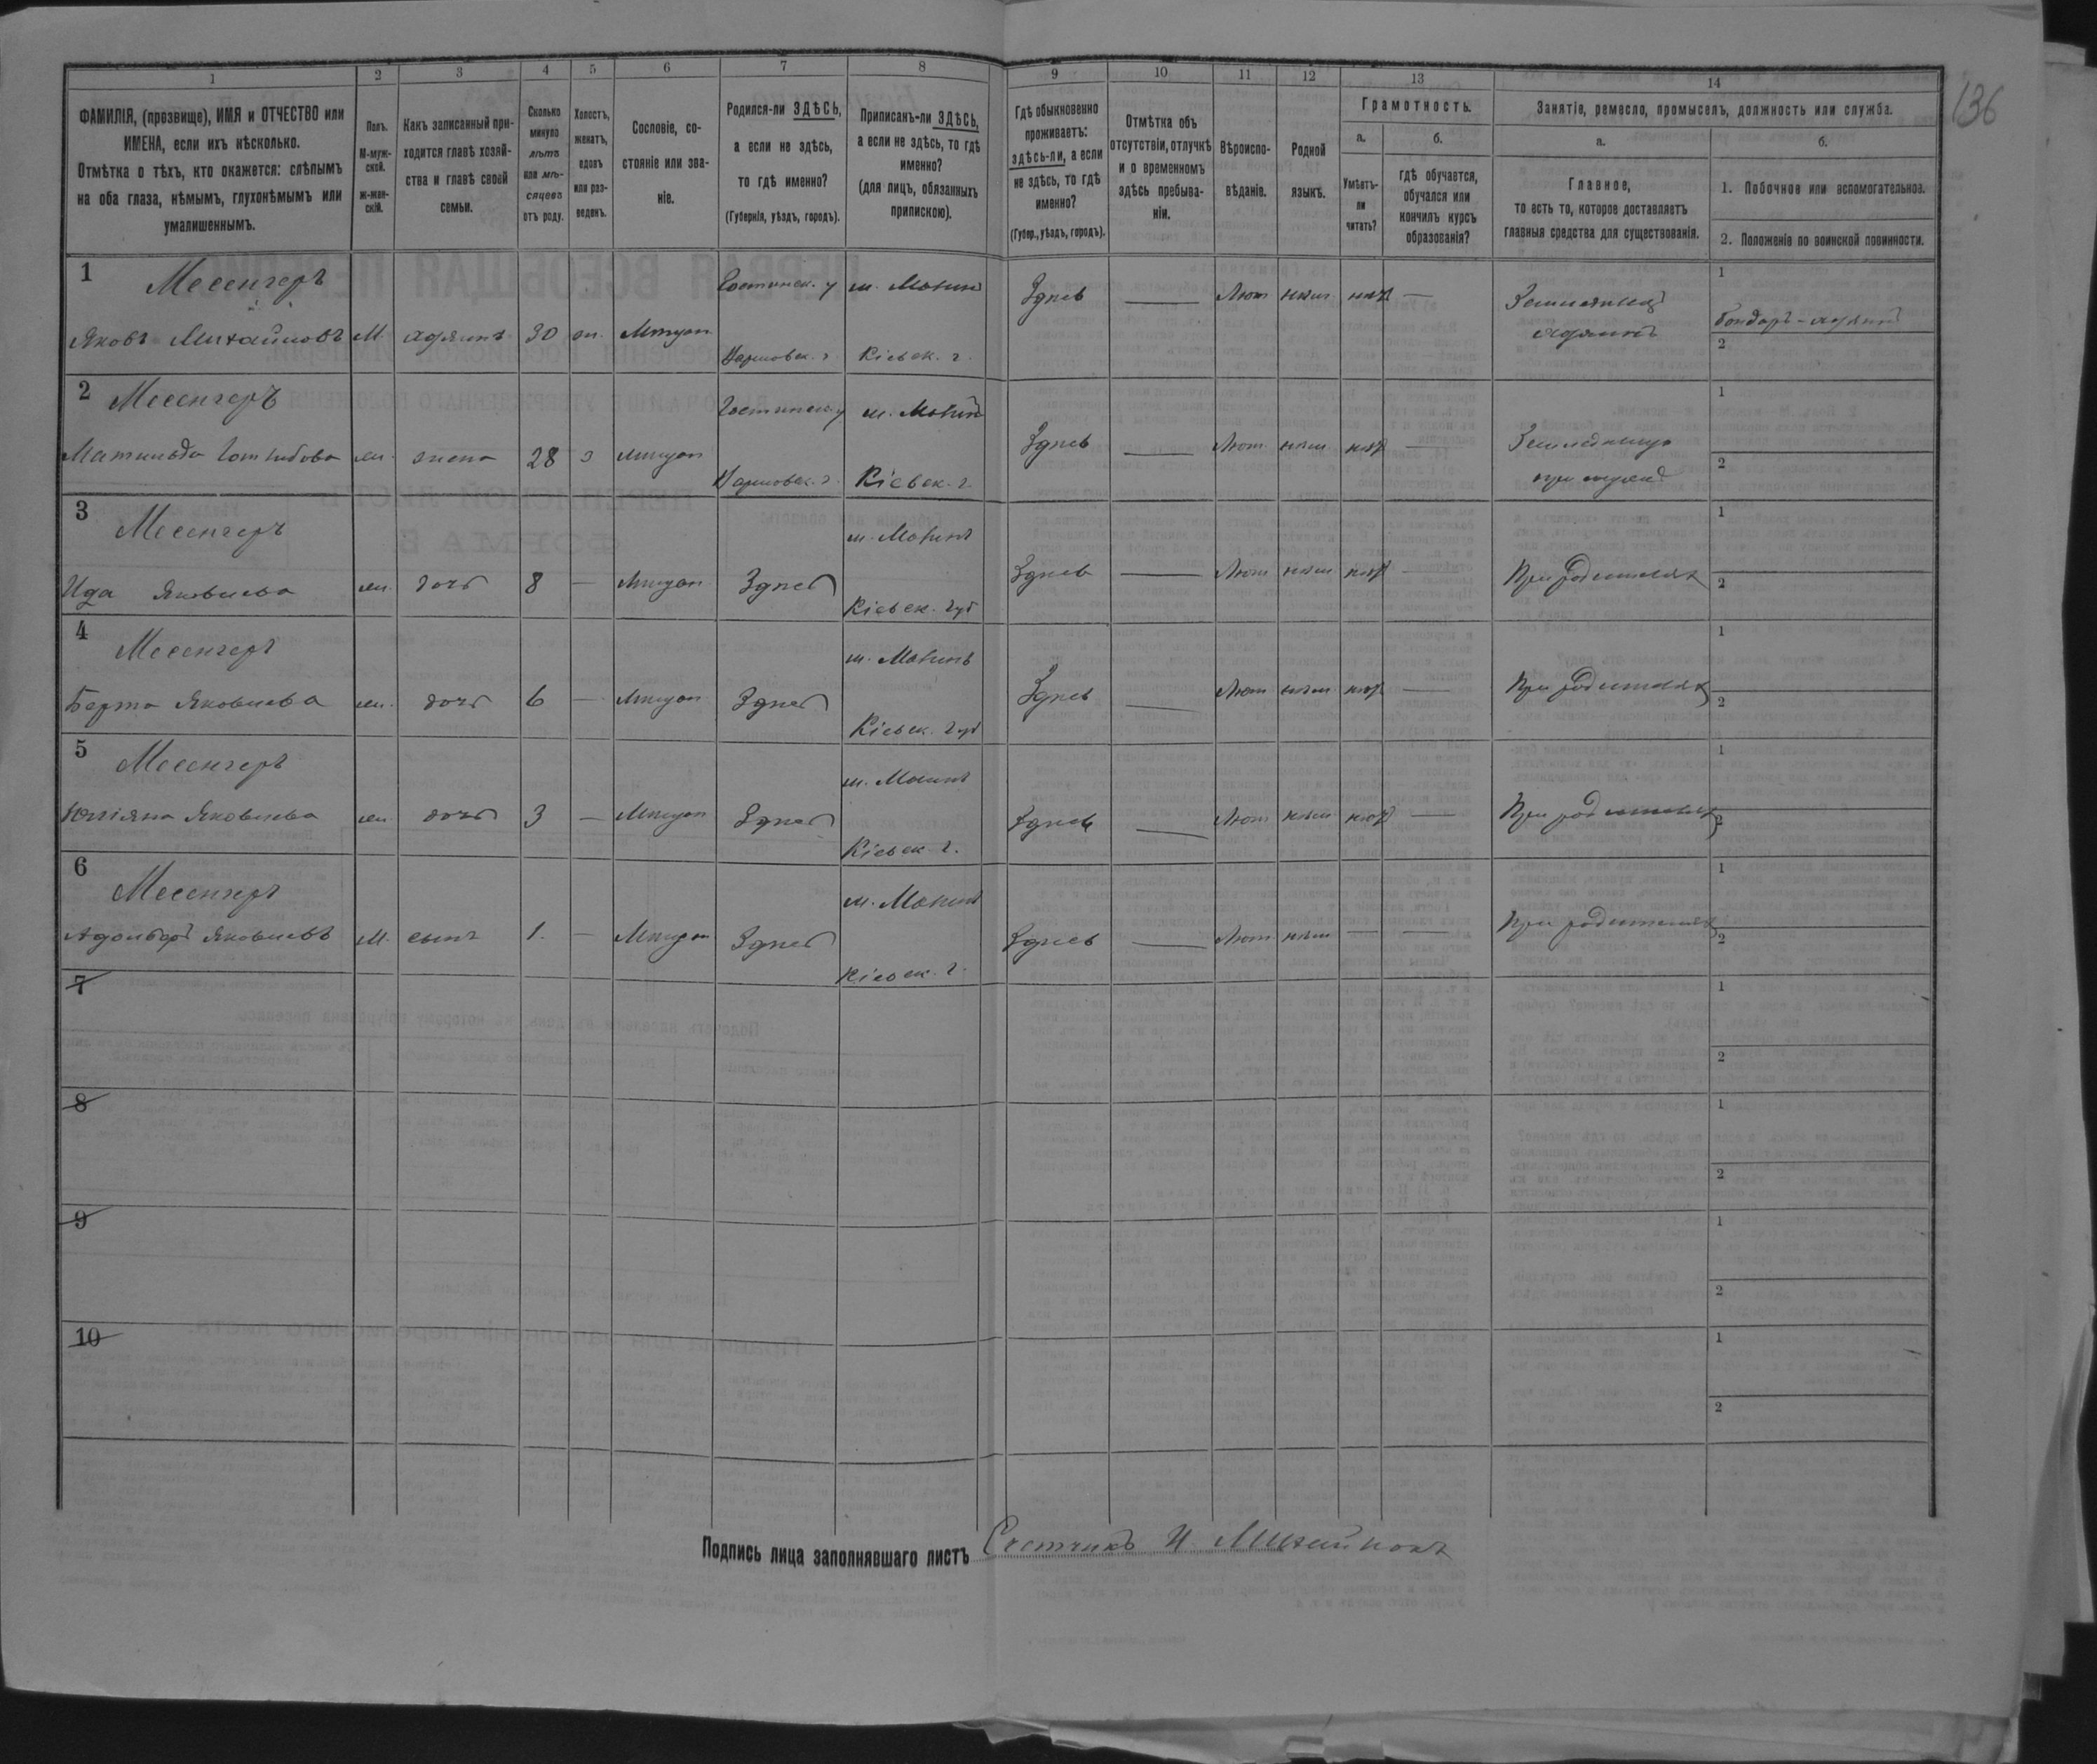 136
1 2 3 4 5 6 7 8 9 10 11 12 13 14
ФАМИЛІЯ, (прозвище), ИМЯ и ОТЧЕСТВО или
ИМЕНА, если ихъ нѣсколько.
Отмѣтка о тѣхъ, кто окажется: слѣпымъ
на оба глаза, нѣмымъ, глухонѣмымъ или
умалишеннымъ.
Полъ.
М-муж-
ской.
ж-жен-
скій.
Какъ записанный при-
ходится главѣ хозяй-
ства и главѣ своей
семьи.
Сколько
минуло
лѣтъ
или мѣ-
сяцевъ
отъ роду.
Холостъ,
женатъ,
вдовъ
или раз-
веденъ.
Сословіе, со-
стояніе или зва-
ніе.
Родился-ли ЗДѢСЬ,
а если не здѣсь,
то гдѣ именно?
(Губернія, уѣздъ, городъ).
Приписанъ-ли ЗДѢСЬ,
а если не здѣсь, то гдѣ
именно?
(для лицъ, обязанныхъ
припискою).
Гдѣ обыкновенно
проживаетъ:
здѣсь-ли, а если
не здѣсь, то гдѣ
именно?
(Губер., уѣздъ, городъ).
Отмѣтка объ
отсутствіи, отлучкѣ
и о временномъ
здѣсь пребыва-
ніи.
Вѣроиспо-
вѣданіе.
Родной
языкъ.
Грамотность.
а.
Умѣетъ-
ли
читать?
б.
гдѣ обучается,
обучался или
кончилъ курсъ
образованія?
Занятіе, ремесло, промыселъ, должность или служба.
а.
Главное,
то есть то, которое доставляетъ
главныя средства для существованія.
б.
1. Побочное или вспомогательное.
2. Положеніе по воинской повинности.
1 Месенгеръ
Яковъ Михайловъ М. хозяинъ 30 жн. Мѣщан.
Гостинск. у
Варшовск. г
м. Макинъ
Кіевск. г.
Здѣсь — Лют. нѣм. нѣтъ —
хозяинъ
1
Бондарь - хозяинъ
2
2 Месенгеръ
Матильда Готлибова жн. жена 28 з мѣщан
Гостинск. у
Варшовск. г.
м. Макинъ
Кіевск. г.
Здѣсь — Лют. нѣм нѣтъ —
при мужѣ
1
2
3 Месенгеръ
Ида Яковлева жн. дочь 8 — Мѣщан Здѣсь
м. Макинъ
Кіевск. губ
Здѣсь — Лют нѣм нѣтъ —
При родителяхъ
1
2
4 Месенгеръ
Берта Яковлева жн. дочь 6 — Мѣщан Здѣсь
м. Макинъ
Кіевск. губ
Здѣсь — Лют нѣм нѣтъ —
При родителяхъ
1
2
5 Месенгеръ
Юліяна Яковлева жн. дочь 3 — Мѣщан Здѣсь
м. Макинъ
Кіевск г.
Здѣсь — Лют нѣм нѣтъ —
При родителяхъ
1
2
6 Месенгеръ
Адольфъ Яковлевъ М. сынъ 1. — Мѣщан Здѣсь
м. Макинъ
Кіевск. г.
Здѣсь — Лют. нѣм — —
При родителяхъ
1
2
7
1
2
8
1
2
9
1
2
10
1
2
Подпись лица заполнявшаго листъ Счетчикъ